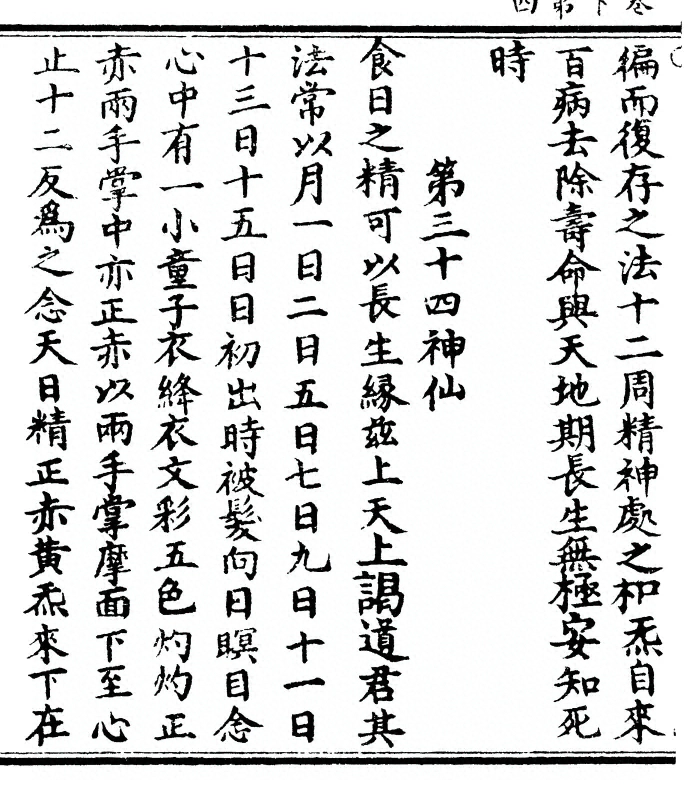 徧而復存之法十二周精神處之和炁自來
百病去除壽命與天地期長生無極安知死
時
第三十四神仙
食日之精可以長生緣兹上天上謁道君其
法常以月一日二日五日七日九日十一日
十三日十五日日初出時被髮向日瞑目念
心中有一小童子衣絳衣文彩五色灼灼正
赤兩手掌中亦正赤以兩手掌摩面下至心
止十二反爲之念天日精正赤黃炁來下在